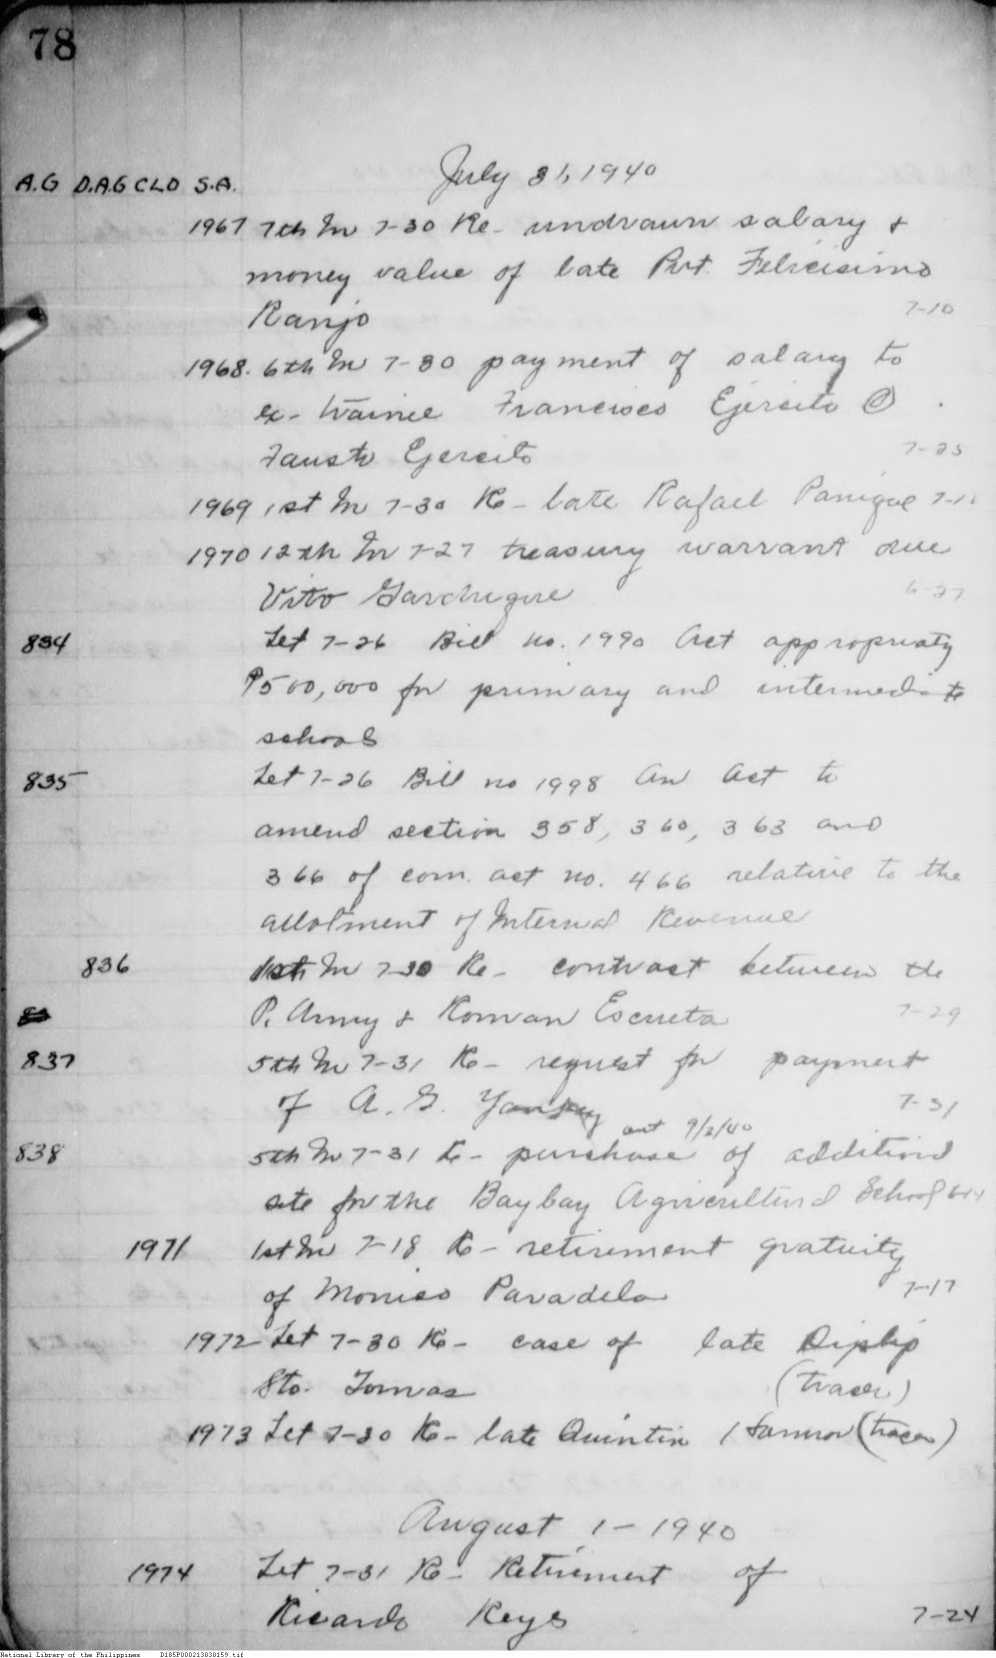 78
July 31, 1940
A.G D.A.G CLD S.A.
1967 7th In 7-30 Re- undrawn salary &
money value of late Pvt. Felicisimo
Ranjo 7-10
1968. 6th In 7-30 payment of salary to
ex- trainee Francisco Ejercito @
Fausto Ejercito 7-25
1969 1st In 7-30 Re- late Rafael Panique
1970 12th In 7-27 treasury warrant due
Vito 6-27
834 Let 7-26 Bill no. 1990 Act appropriatg
₱500,000 for primary and intermediate
schools
835 Let 7-26 Bill no 1998 An Act to
amend section 358, 360, 363 and
366 of com. act no. 466 relative to the
allotment of Internal Revenue
836 1st In 7-30 Re- contract between the
P. Army & Roman Escueta 7-29
837 5th In 7-31 Re- request for payment
of A. G. 7-31
ant 9/3/40
838 5th In 7-31 Re- purchase of additional
site for the Baybay Agricultural School
1971 1st In 7-18 Re- retirement gratuity
of Monico Paradela 7-17
1972 Let 7-30 Re- case of late
Sto. Tomas (tracer)
1973 Let 7-30 Re- late Quintin (tracer)
August 1-1940
1974 Let 7-31 Re- Retirement of
Ricardo Reyes 7-24
National Library of the Philippines D185P000213838159.tif